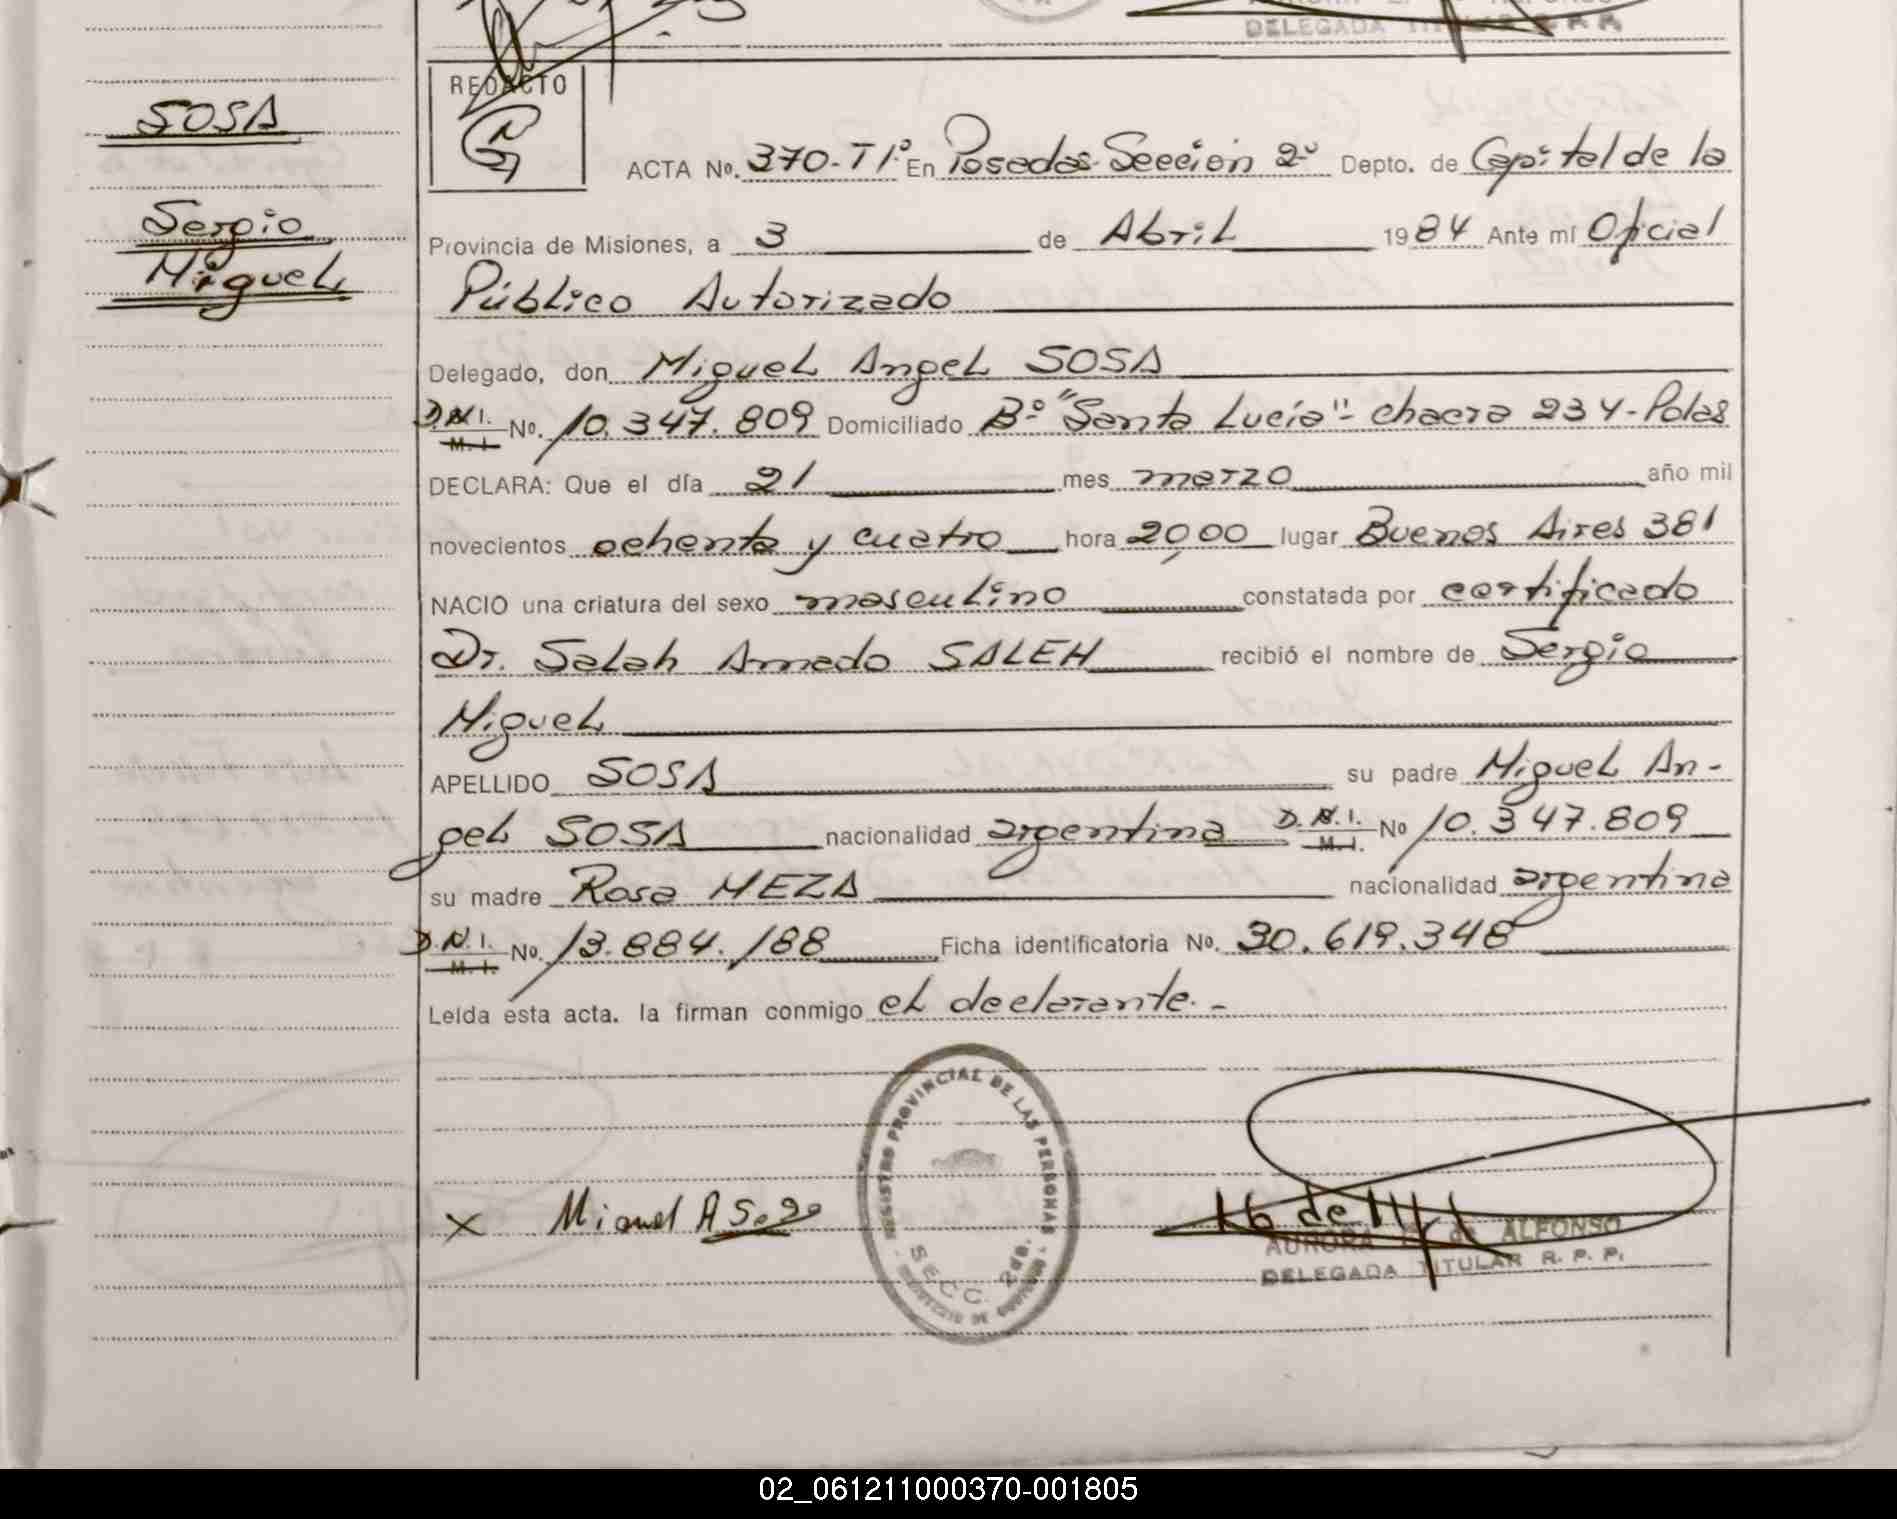 DELEGADA TITULAR R. P. P.
REDACTO
SOSA
Sergio
Miguel
ACTA Nº. 370-T1º En Posadas-Sección 2º Depto. de Capital de la
Provincia de Misiones, a 3 de Abril 1984 Ante mí Oficial
Público Autorizado
Delegado, don Miguel Angel SOSA
D.N.I. M. I. Nº. 10.347.809 Domiciliado Bº "Santa Lucía"- chacra 234-Pdas
DECLARA: Que el día 21 mes marzo año mil
novecientos ochenta y cuatro hora 20,00 lugar Buenos Aires 381
NACIO una criatura del sexo masculino constatada por certificado
Dr. Salah Amado SALEH recibió el nombre de Sergio
Miguel
APELLIDO SOSA su padre Miguel An-
gel SOSA nacionalidad argentina D.N.I. M. I. Nº 10.347.809
su madre Rosa MEZA nacionalidad argentina
D.N.I. M. I. Nº. 13.884.188 Ficha identificatoria Nº. 30.619.348
Leída esta acta. la firman conmigo el declarante.-
REGISTRO PROVINCIAL DE LAS PERSONAS
SECC. 2da.
x Miguel A Sosa
AURORA de ALFONSO
DELEGADA TITULAR R. P. P.
02_061211000370-001805